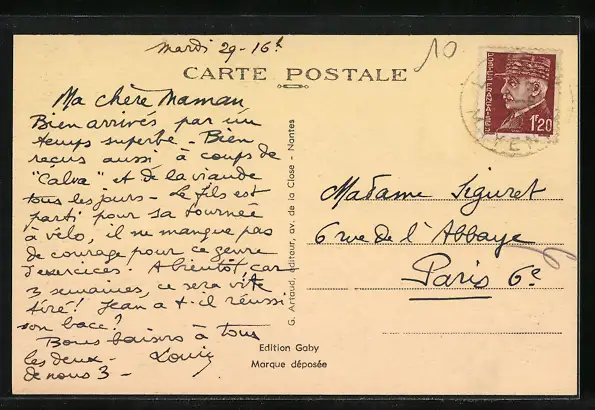 mardi 29 - 16h
10
CARTE POSTALE
Ma chère Maman
Bien arrivés par un
temps superbe - Bien
reçus aussi à coups de
"Calva" et de la viande
tous les jours - Le fils est
parti pour sa tournée
à vélo, il ne manque pas
de courage pour ce genre
d'exercices. A bientôt, car
3 semaines, ce sera vite
tiré! Jean a-t-il réussi
son bacc?
Bons baisers à tous
les deux - Louis
de nous 3 -
G. Artaud, éditeur, av. de la Close - Nantes
Edition Gaby
Marque déposée
1f20
Madame Siguret
6 rue de l'Abbaye
Paris 6e